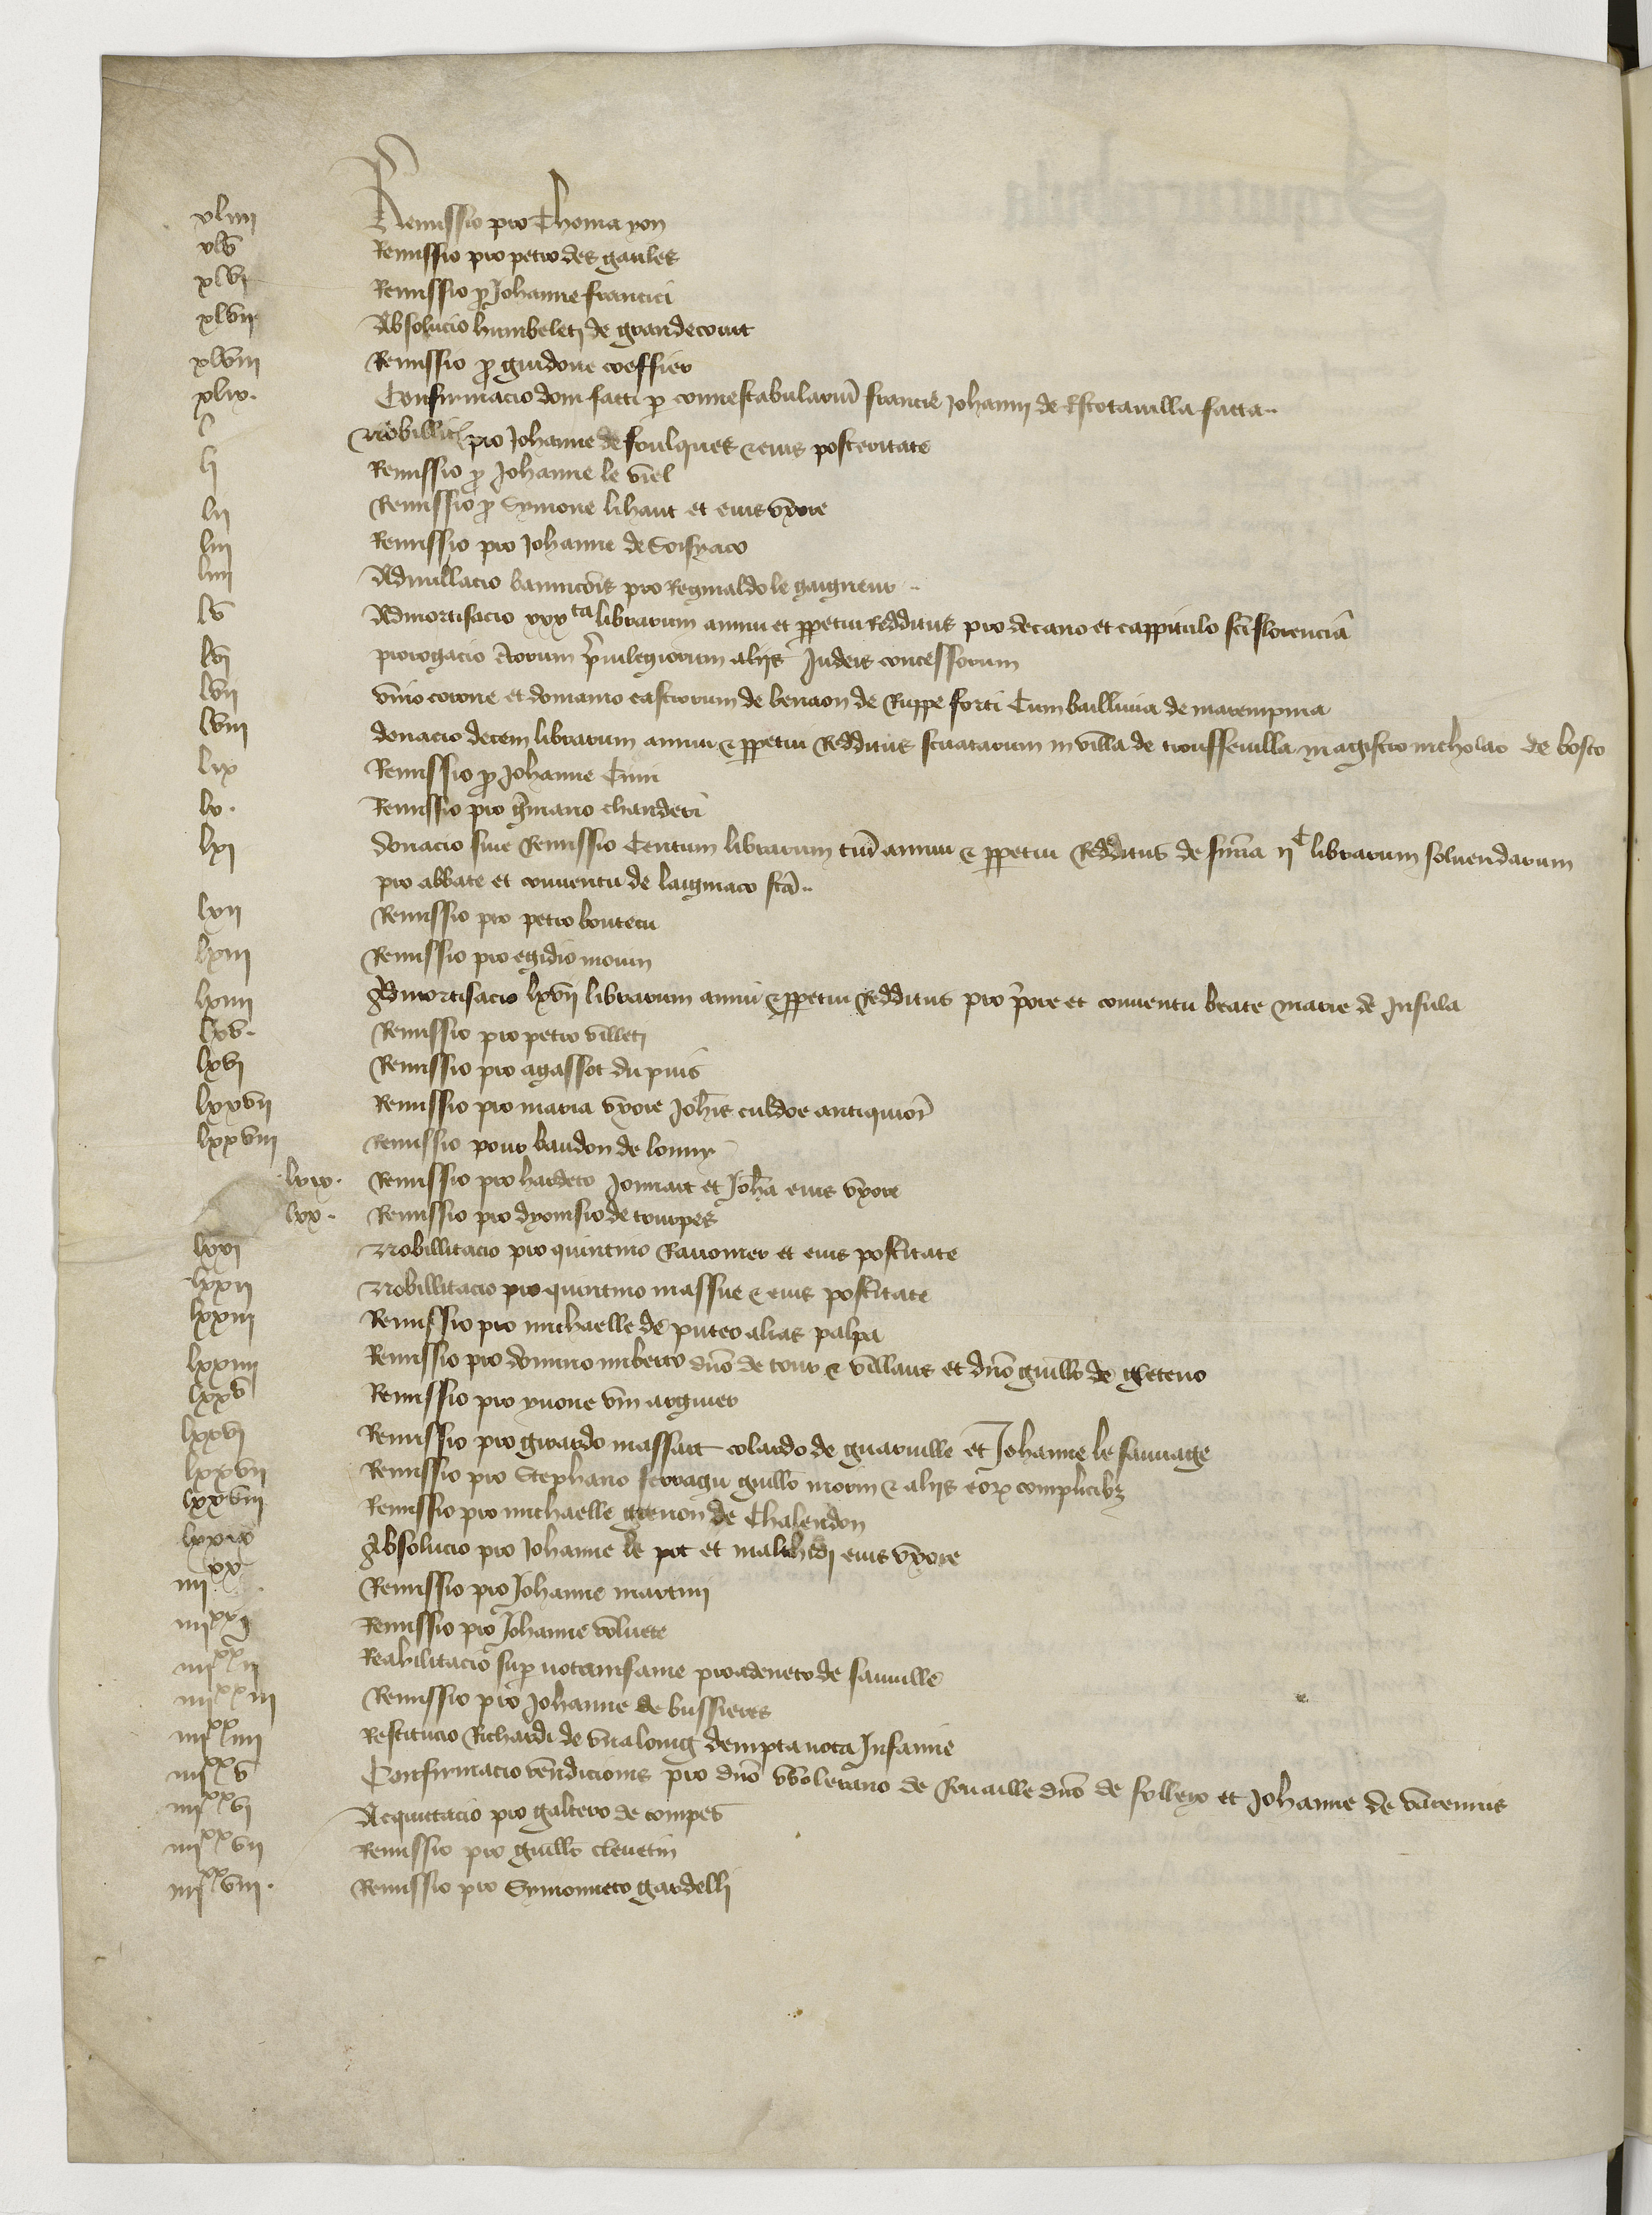 xliiii Remissio pro Thoma yon
xlv Remissio pro petro des gaules
xlvi Remissio p Johanne francici
xlvii Absolucio humbeleti de grandecourt
xlviii Remissio p guidone coeffier
xlix. Confirmacio doni facti p connestabulariū francie Johanni de Estotauilla facta..
l Nobillit pro Johanne de foulques & eius posteritate
li Remissio p Johanne le viel
lii Remissio p Symone lihaut et eius uxore
liii Remissio pro Johanne de Soisyaco
liiii Adnullacio bannicōis pro Reginaldo le gaigneur ..
lv Admortisacio xxxta librarum annui et ppetui Redditus pro decano et cappitulo sci florencii
lvi prorogacio ctorum puilegiorum aliis Judeis concessorum
lvii Unio corone et domanio castrorum de benaon de Ruppe forti Cum baillivia de marempnia
lviii donacio decem librarum annui & ppetui Redditus scituatarum in villa de trousseuilla magistro nicholao de bosco
lix Remissio p Johanne Cini
lx. Remissio pro gmano chanderi
lxi donacio siue Remissio Centum librarum tur annui & ppetui Redditus de suma iic librarum soluendarum
pro abbate et conuentu de laigniaco fcā..
lxii Remissio pro petro boutecu
lxiii Remissio pro egidio morin
lxiiii Admortisacio lxvii librarum annui & ppetui Redditus pro pore et conuentu beate marie de Insula
lxv. Remissio pro petro villeti
lxvi Remissio pro agassot du puis
lxxvii Remissio pro maria uxore Johis culdoe antiquiori
lxxviii Remissio pour baudon de lonny
lxix. Remissio pro hardeto Jonnart et Joha eius uxore
lxx. Remissio pro dyonisio de tourpes
lxxi Nobillitacio pro quintino Rauomer et eius postitate
lxxii Nobillitacio pro quintino massue & eius postitate
lxxiii Remissio pro michaelle de puteo alias palpa
lxxiiii Remissio pro domino imberto dno de tour & villaus et dno guillo de gleteno
lxxv Remissio pro yuone vin arguier
lxxvi Remissio pro girardo massart colardo de guaruille et Johanne le sauuage
lxxvii Remissio pro Stephano ferragu guillo morin & aliis eorum complicibz
lxxviii Remissio pro michaelle grenon de Chalendon
lxxix Absolucio pro Johanne le pot et malthidi eius uxore
iiiixx. Remissio pro Johanne martini
iiiixx i Remissio pro Johanne voluete
iiiixx ii Reabilitacio sup notam famie pro adeneto de sauuille
iiiixx iii Remissio pro Johanne de bussieres
iiiixx iiii Restitucio Richardi de unalong dempta nota Infamie
iiiixx v Confirmacio vendicionis pro dno Volerano de Reuaille dno de folleyo et Johanne de varennis
iiiixx vi Acquittacio pro galtero de compes
iiiixx vii Remissio pro guillo cleuetin
iiiixx viii. Remissio pro Symonneto gardelli